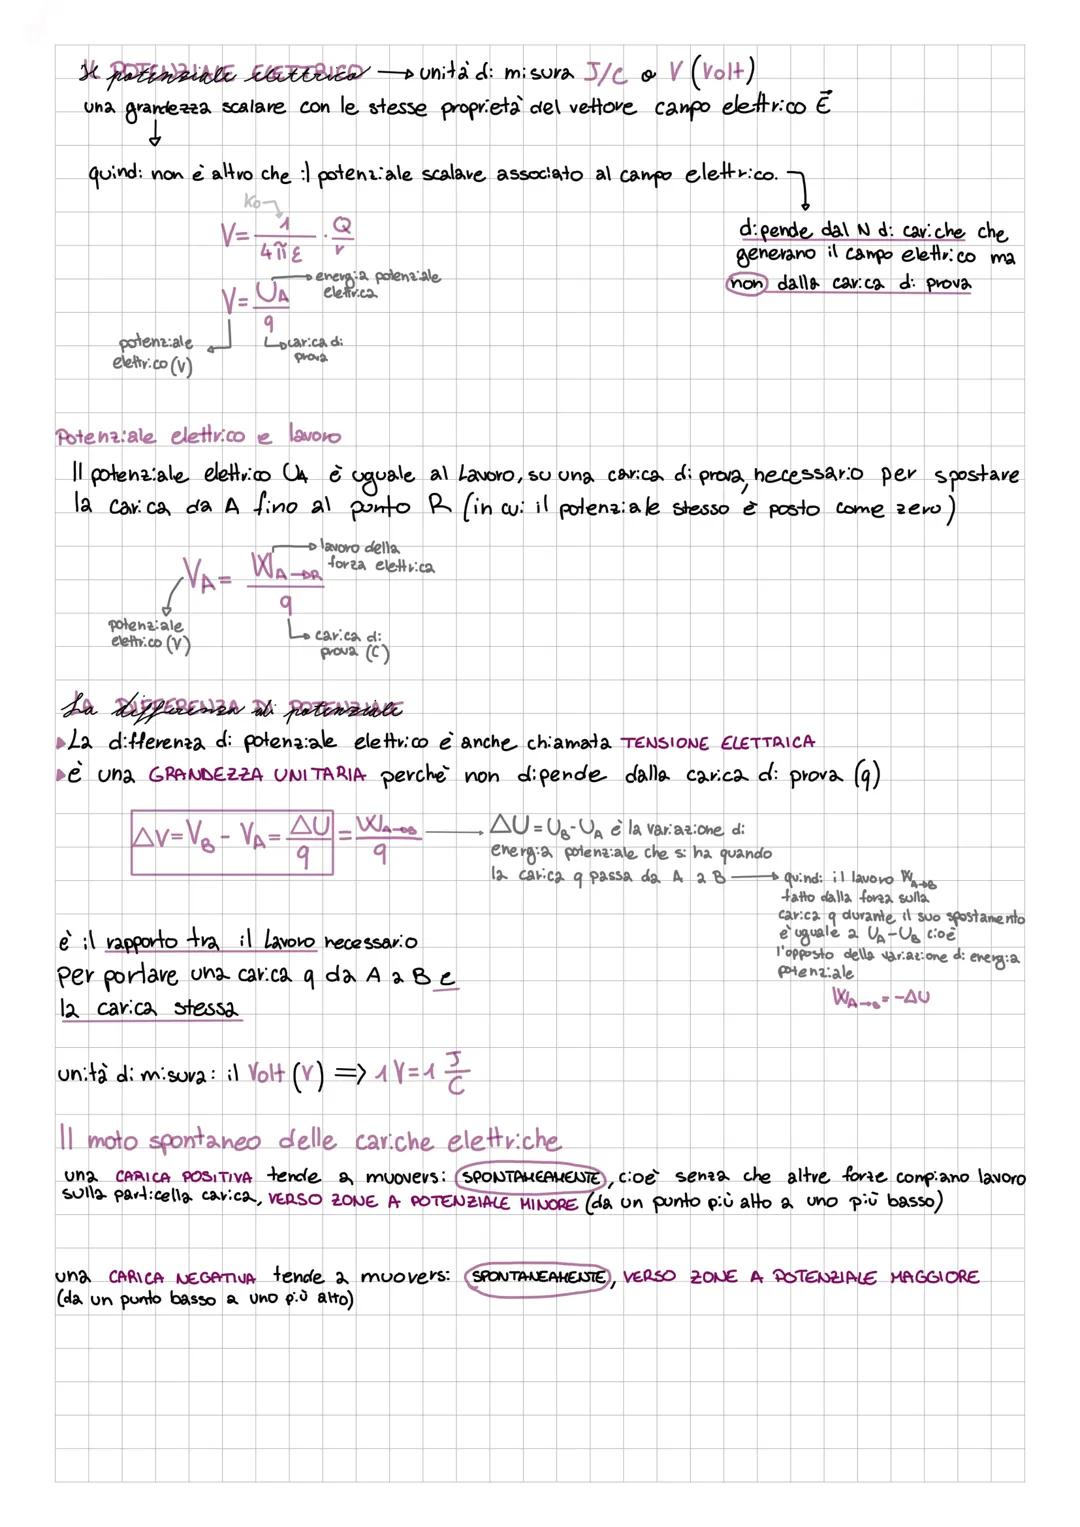 Il potenziale elettrico → unità di misura J/C o V (Volt)
una grandezza scalare con le stesse proprietà del vettore campo elettrico E
quindi non è altro che il potenziale scalare associato al campo elettrico.
dipende dal N di cariche che
generano il campo elettrico ma
non dalla carica di prova
K₀
V = 1/4πε · Q/r
V = U_A/q
energia potenziale
elettrica
carica di
prova
potenziale
elettrico (V)
Potenziale elettrico e lavoro
Il potenziale elettrico U_A è uguale al Lavoro, su una carica di prova, necessario per spostare
la carica da A fino al punto R (in cui il potenziale stesso è posto come zero)
V_A = W_A→R/q
lavoro della
forza elettrica
potenziale
elettrico (V)
carica di
prova (C)
La differenza di potenziale
La differenza di potenziale elettrico è anche chiamata TENSIONE ELETTRICA
è una GRANDEZZA UNITARIA perchè non dipende dalla carica di prova (q)
ΔV = V_B - V_A = ΔU/q = W_A→B/q
ΔU = U_B - U_A è la variazione di
energia potenziale che si ha quando
la carica q passa da A a B → quindi il lavoro W_A→B
fatto dalla forza sulla
carica q durante il suo spostamento
è uguale a U_A - U_B cioè
l'opposto della variazione di energia
potenziale
W_A→B = -ΔU
è il rapporto tra il Lavoro necessario
per portare una carica q da A a B e
la carica stessa
unità di misura: il Volt (V) => 1 V = 1 J/C
Il moto spontaneo delle cariche elettriche
una CARICA POSITIVA tende a muoversi SPONTANEAMENTE, cioè senza che altre forze compiano lavoro
sulla particella carica, VERSO ZONE A POTENZIALE MINORE (da un punto più alto a uno più basso)
una CARICA NEGATIVA tende a muoversi SPONTANEAMENTE, VERSO ZONE A POTENZIALE MAGGIORE
(da un punto basso a uno più alto)